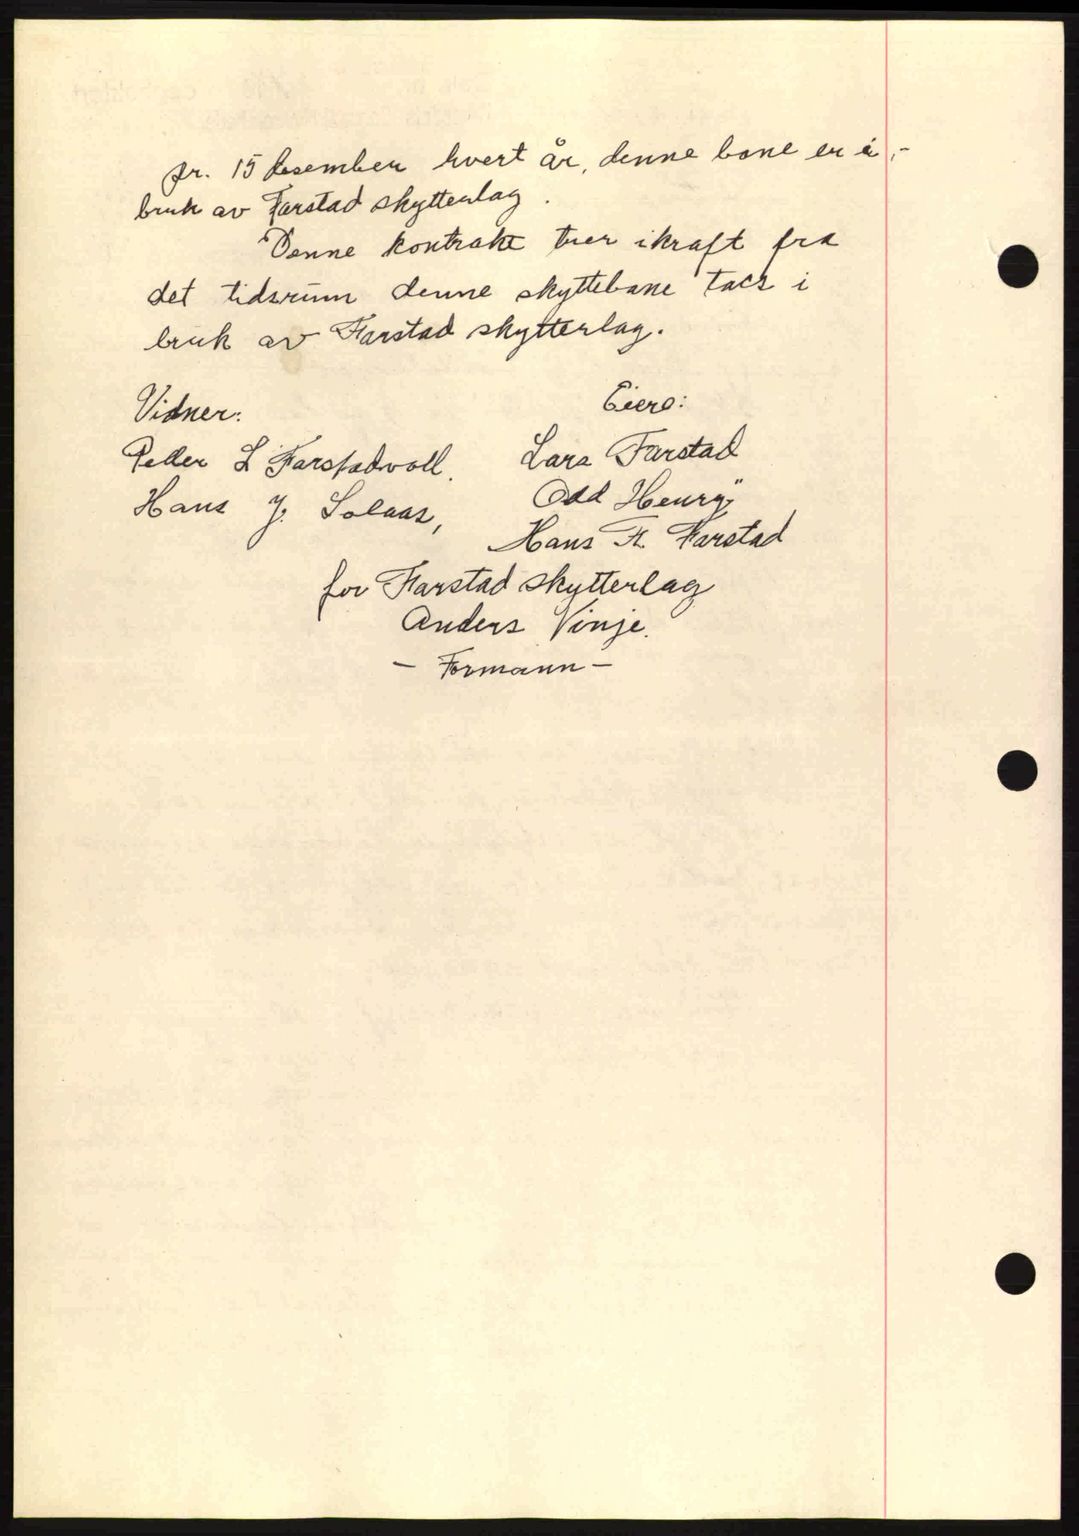 pr. 15 desember hvert år, denne bane er i,-
bruk av Farstad skytterlag.
Denne kontrakt trer ikraft fra
det tidsrum denne skyttebane taes i
bruk av Farstad skytterlag.
Vidner: Eiere:
Peder L Farstadvoll. Lars Farstad
Hans J. Solaas, Odd Henry "
Hans Fr. Farstad
for Farstad skytterlag
Anders Vinje.
- Formann -